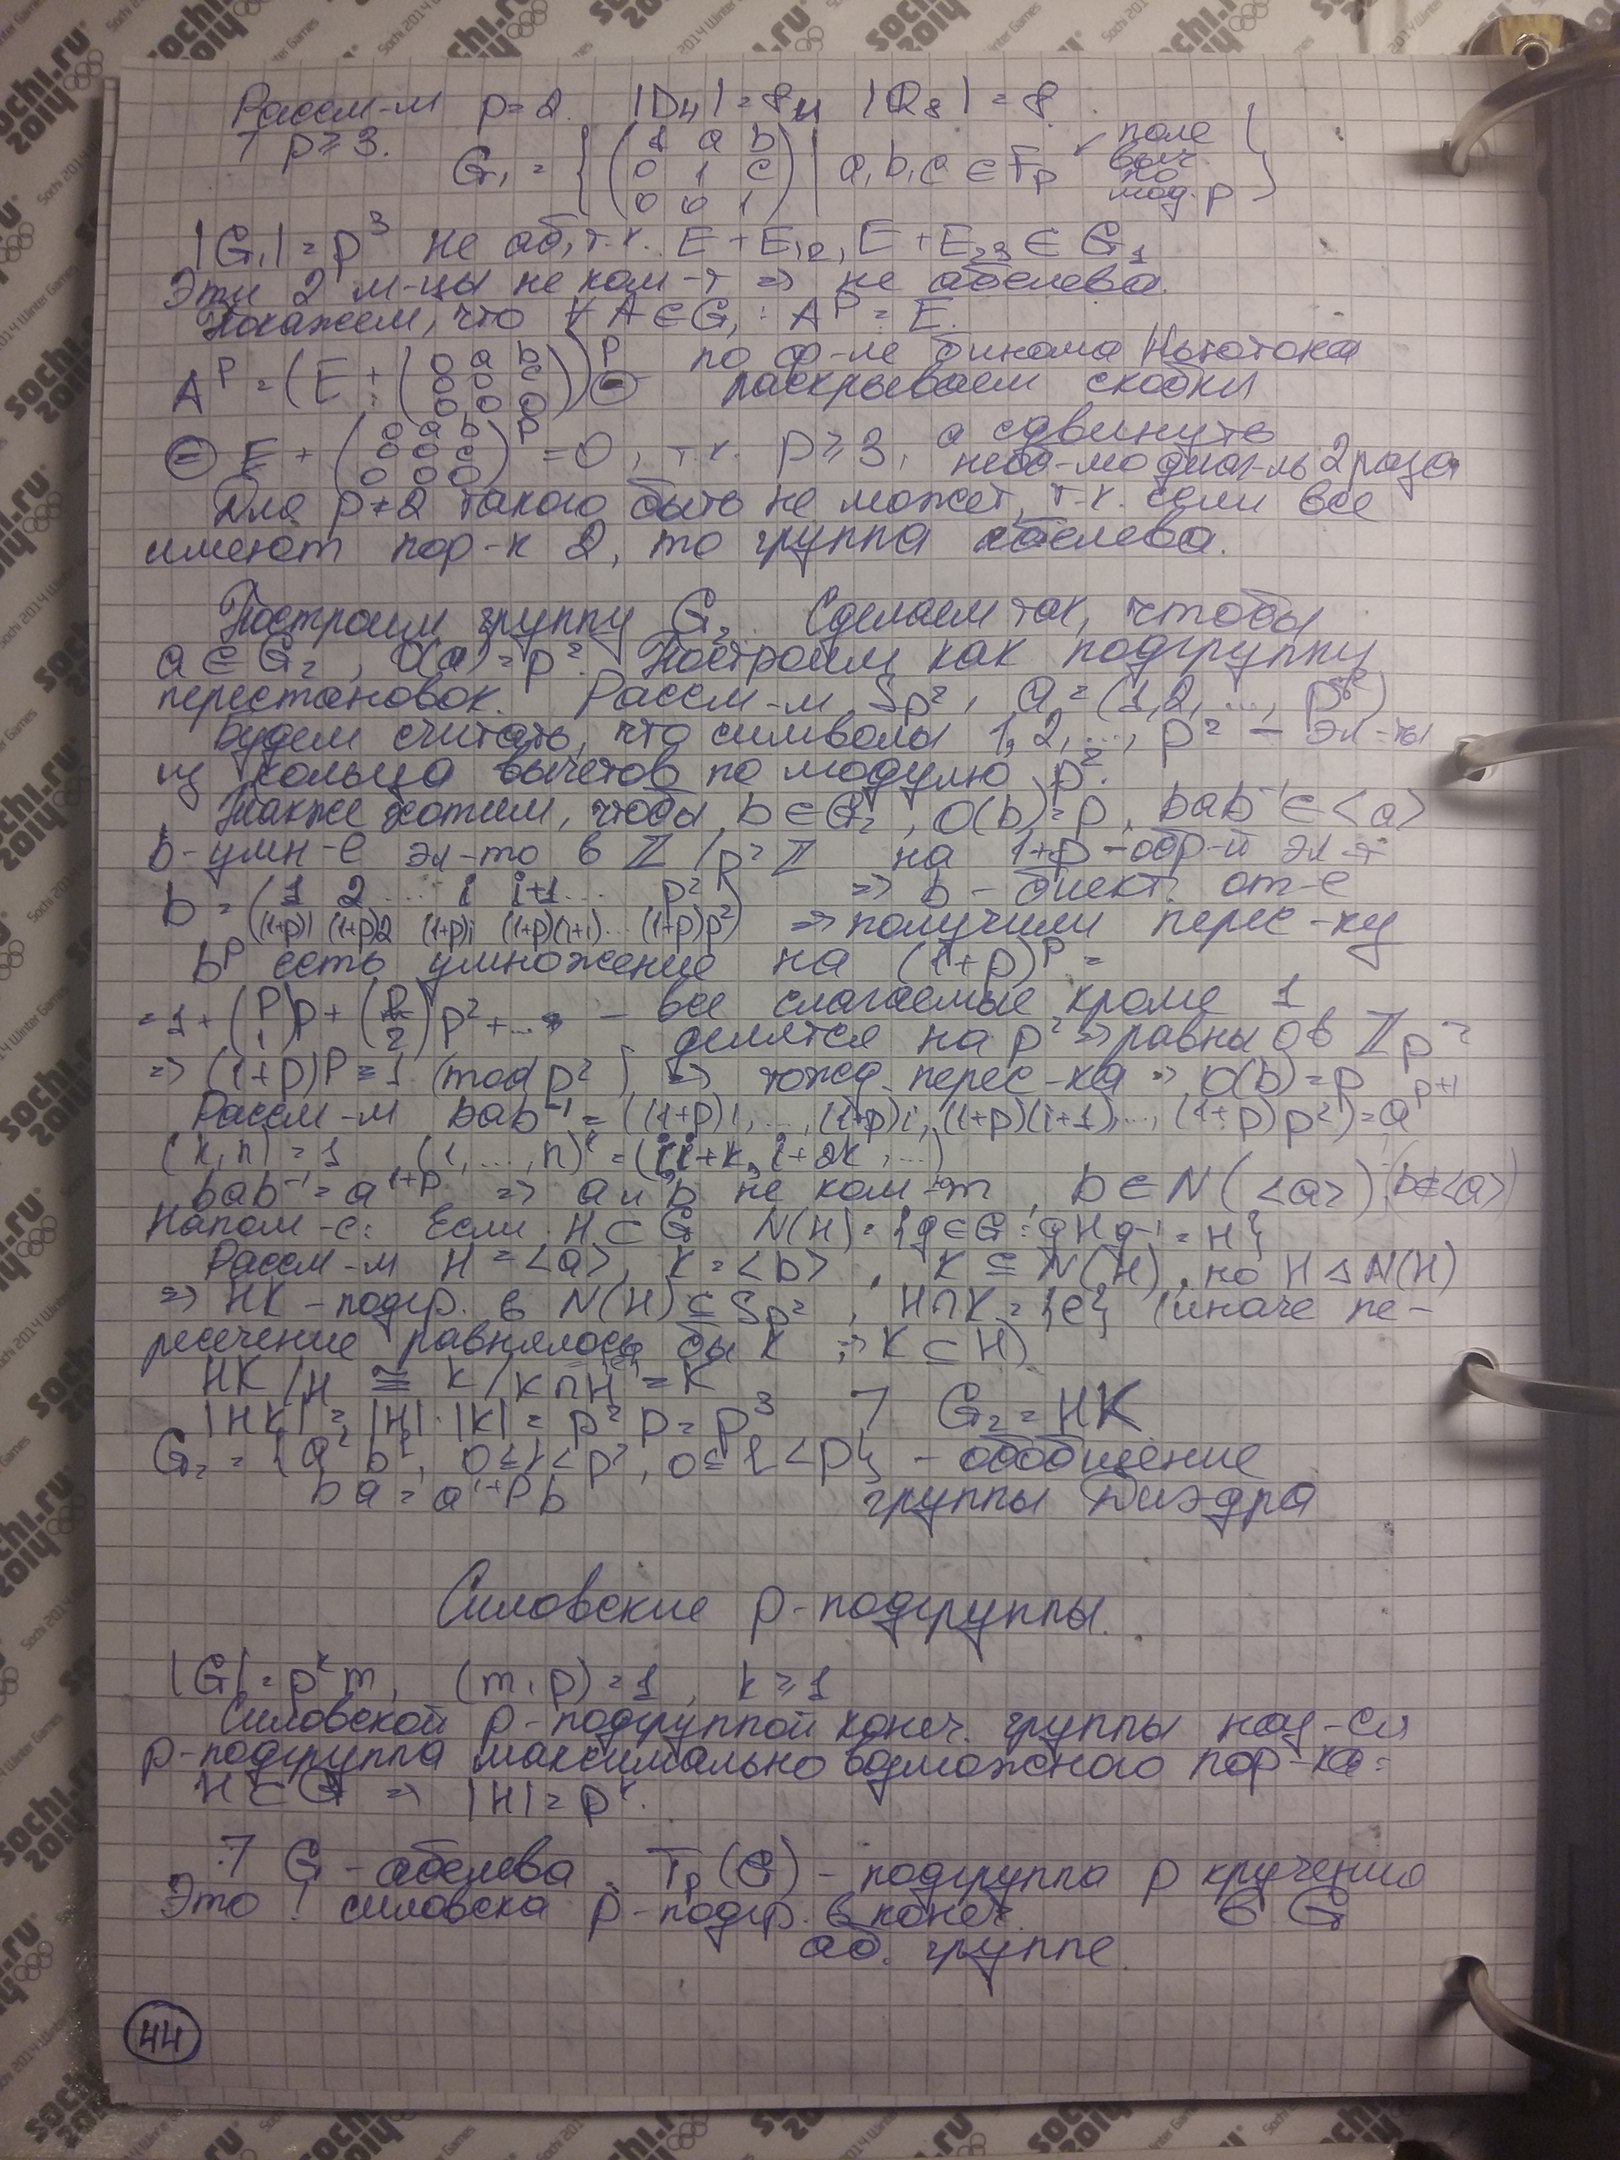 Рассм-м p=2. |D₄|=8 и |Q₈|=8.
7 p≥3. G₁ = { (1 a b; 0 1 c; 0 0 1) | a, b, c ∈ F_p ↙ поле выч. по мод. p }
|G₁|=p³ не аб, т.к. E+E₁₂, E+E₂₃ ∈ G₁
Эти 2 м-цы не ком-т ⇒ не абелева.
Покажем, что ∀A∈G₁ : A^p = E.
A^p = (E + (0 a b; 0 0 c; 0 0 0))^p ⊜ по ф-ле бинома Ньютона
раскрываем скобки
⊜ E + (0 a b; 0 0 c; 0 0 0)^p = 0, т.к. p≥3, а сдвинуть
диаг-ль 2 раза
Для p=2 такого быть не может, т.к. если все
имеют пор-к 2, то группа абелева.
Построим группу G₂. Сделаем так, чтобы
a∈G₂, O(a)=p². Построим как подгруппу
перестановок. Рассм-м S_p², a=(1,2,...,p²)
Будем считать, что символы 1,2,...,p² – эл-ты
из кольца вычетов по модулю p².
Также хотим, чтобы b∈G₂, O(b)=p, bab⁻¹∈<a>
b-умн-е эл-то в ℤ/p²ℤ на 1+p – обр-й эл-т
b = (1 2 ... i i+1 ... p²; (1+p)1 (1+p)2 (1+p)i (1+p)(i+1)... (1+p)p²) ⇒ b – биект. от-е
⇒ получили перес-ку
b^p есть умножение на (1+p)^p =
=1+(p 1)p+(p 2)p²+... – все слагаемые кроме 1
делятся на p² ⇒ равны 0 в ℤ_p²
⇒ (1+p)^p ≡ 1 (mod p²) ⇒ тожд. перес-ка ⇒ O(b)=p
Рассм-м bab⁻¹ = ((1+p)1,...,(1+p)i,(1+p)(i+1),...,(1+p)p²)=a^p+1
(k,n)=1 (1,...,n)^k = (i,i+k, i+2k,...)
bab⁻¹=a^1+p ⇒ a и b не ком-т, b∈N(<a>) (b∉<a>)
Напом-е: Если H⊂G N(H)={g∈G : gHg⁻¹=H}
Рассм-м H=<a>, K=<b>, K⊆N(H), но H⊲N(H)
⇒ HK – подгр. в N(H)⊆S_p², H∩K={e} (иначе пе-
ресечение равнялось бы K ⇒ K⊂H)
HK/H ≅ K/K∩H = K
|HK|=|H|·|K|=p²p=p³ 7 G₂=HK
G₂={a^k b^l, 0≤k<p², 0≤l<p} – обобщение
ba=a^1+p b группы Диэдра
Силовские p-подгруппы.
|G|=p^k m, (m,p)=1, k≥1
Силовской p-подгруппой конеч. группы наз-ся
p-подгруппа максимально возможного пор-ка:
H⊂G ⇒ |H|=p^k.
7 G – абелева. T_p(G) – подгруппа p кручения
Это ! силовска p-подгр. в конеч. в G
аб. группе.
44